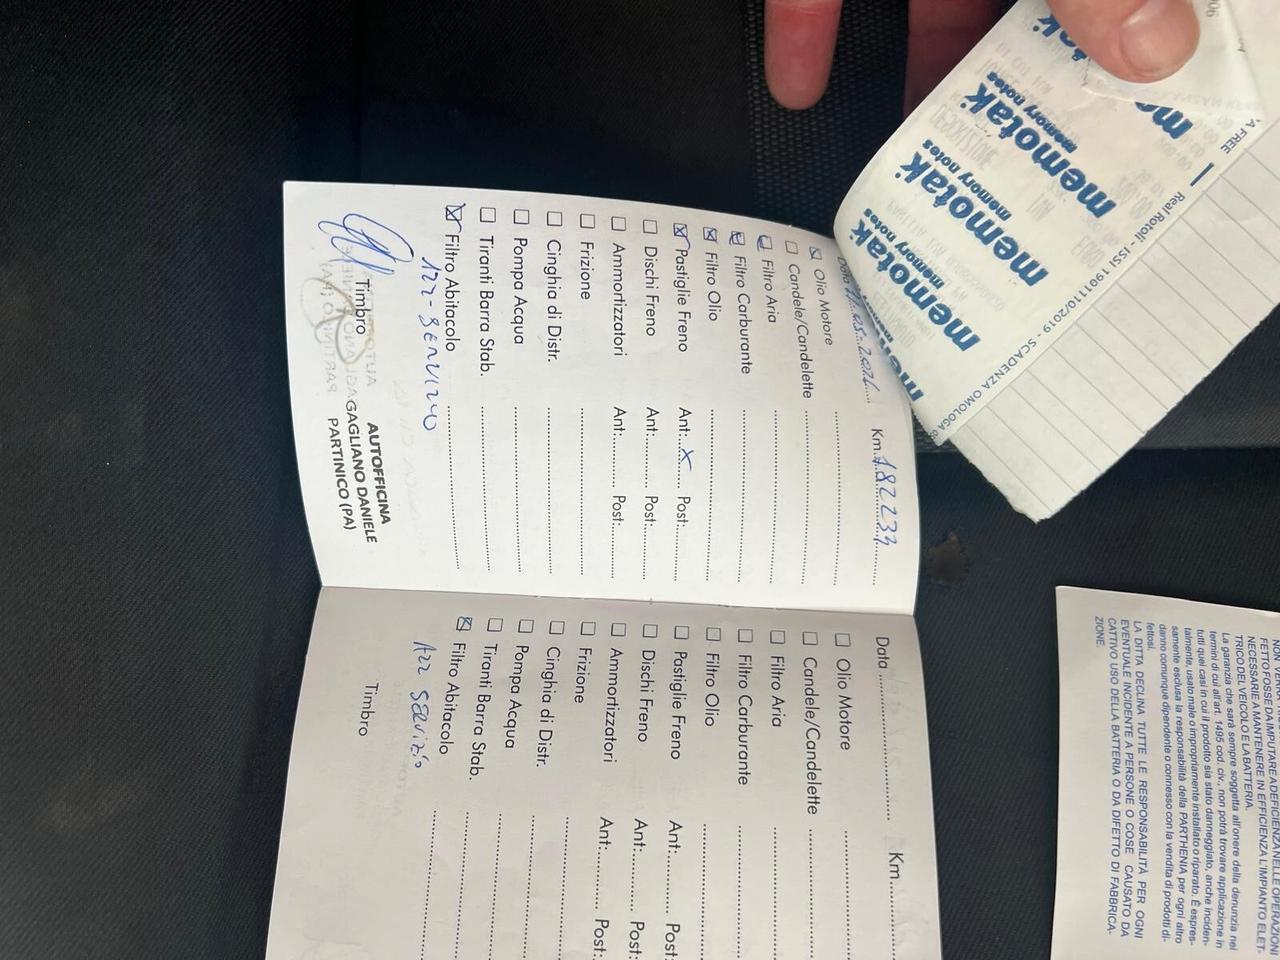 Data 11.05.2026 Km. 182233
☒ Olio Motore
☐ Candele/Candelette
☑ Filtro Aria
☒ Filtro Carburante
☒ Filtro Olio
☒ Pastiglie Freno Ant: X Post:
☐ Dischi Freno Ant: Post:
☐ Ammortizzatori Ant: Post:
☐ Frizione
☐ Cinghia di Distr.
☐ Pompa Acqua
☐ Tiranti Barra Stab.
☒ Filtro Abitacolo
AZZ-SERVIZIO
Timbro
AUTOFFICINA
GAGLIANO DANIELE
PARTINICO (PA)
Data Km.
☐ Olio Motore
☐ Candele/Candelette
☐ Filtro Aria
☐ Filtro Carburante
☐ Filtro Olio
☐ Pastiglie Freno Ant: Post:
☐ Dischi Freno Ant: Post:
☐ Ammortizzatori Ant: Post:
☐ Frizione
☐ Cinghia di Distr.
☐ Pompa Acqua
☐ Tiranti Barra Stab.
☒ Filtro Abitacolo
AZZ SERVIZIO
Timbro
memotak
memory notes
memotak
memory notes
memotak
memory notes
A FREE
Real Rotoli - ISSI 190110/2019 - SCADENZA OMOLOGA
FETTO FOSSE DA IMPUTARE A DEFICIENZA NELLE OPERAZIONI
NECESSARIE A MANTENERE IN EFFICIENZA L'IMPIANTO ELET-
TRICO DEL VEICOLO E LA BATTERIA.
La garanzia che sarà sempre soggetta all'onere della denunzia nei
termini di cui all'art. 1495 cod. civ., non potrà trovare applicazione in
tutti quei casi in cui il prodotto sia stato danneggiato, anche inciden-
talmente, usato male o impropriamente installato o riparato. È espres-
samente esclusa la responsabilità della PARTHENIA per ogni altro
danno comunque dipendente o connesso con la vendita di prodotti di-
fettosi.
LA DITTA DECLINA TUTTE LE RESPONSABILITÀ PER OGNI
EVENTUALE INCIDENTE A PERSONE O COSE CAUSATO DA
CATTIVO USO DELLA BATTERIA O DA DIFETTO DI FABBRICA-
ZIONE.